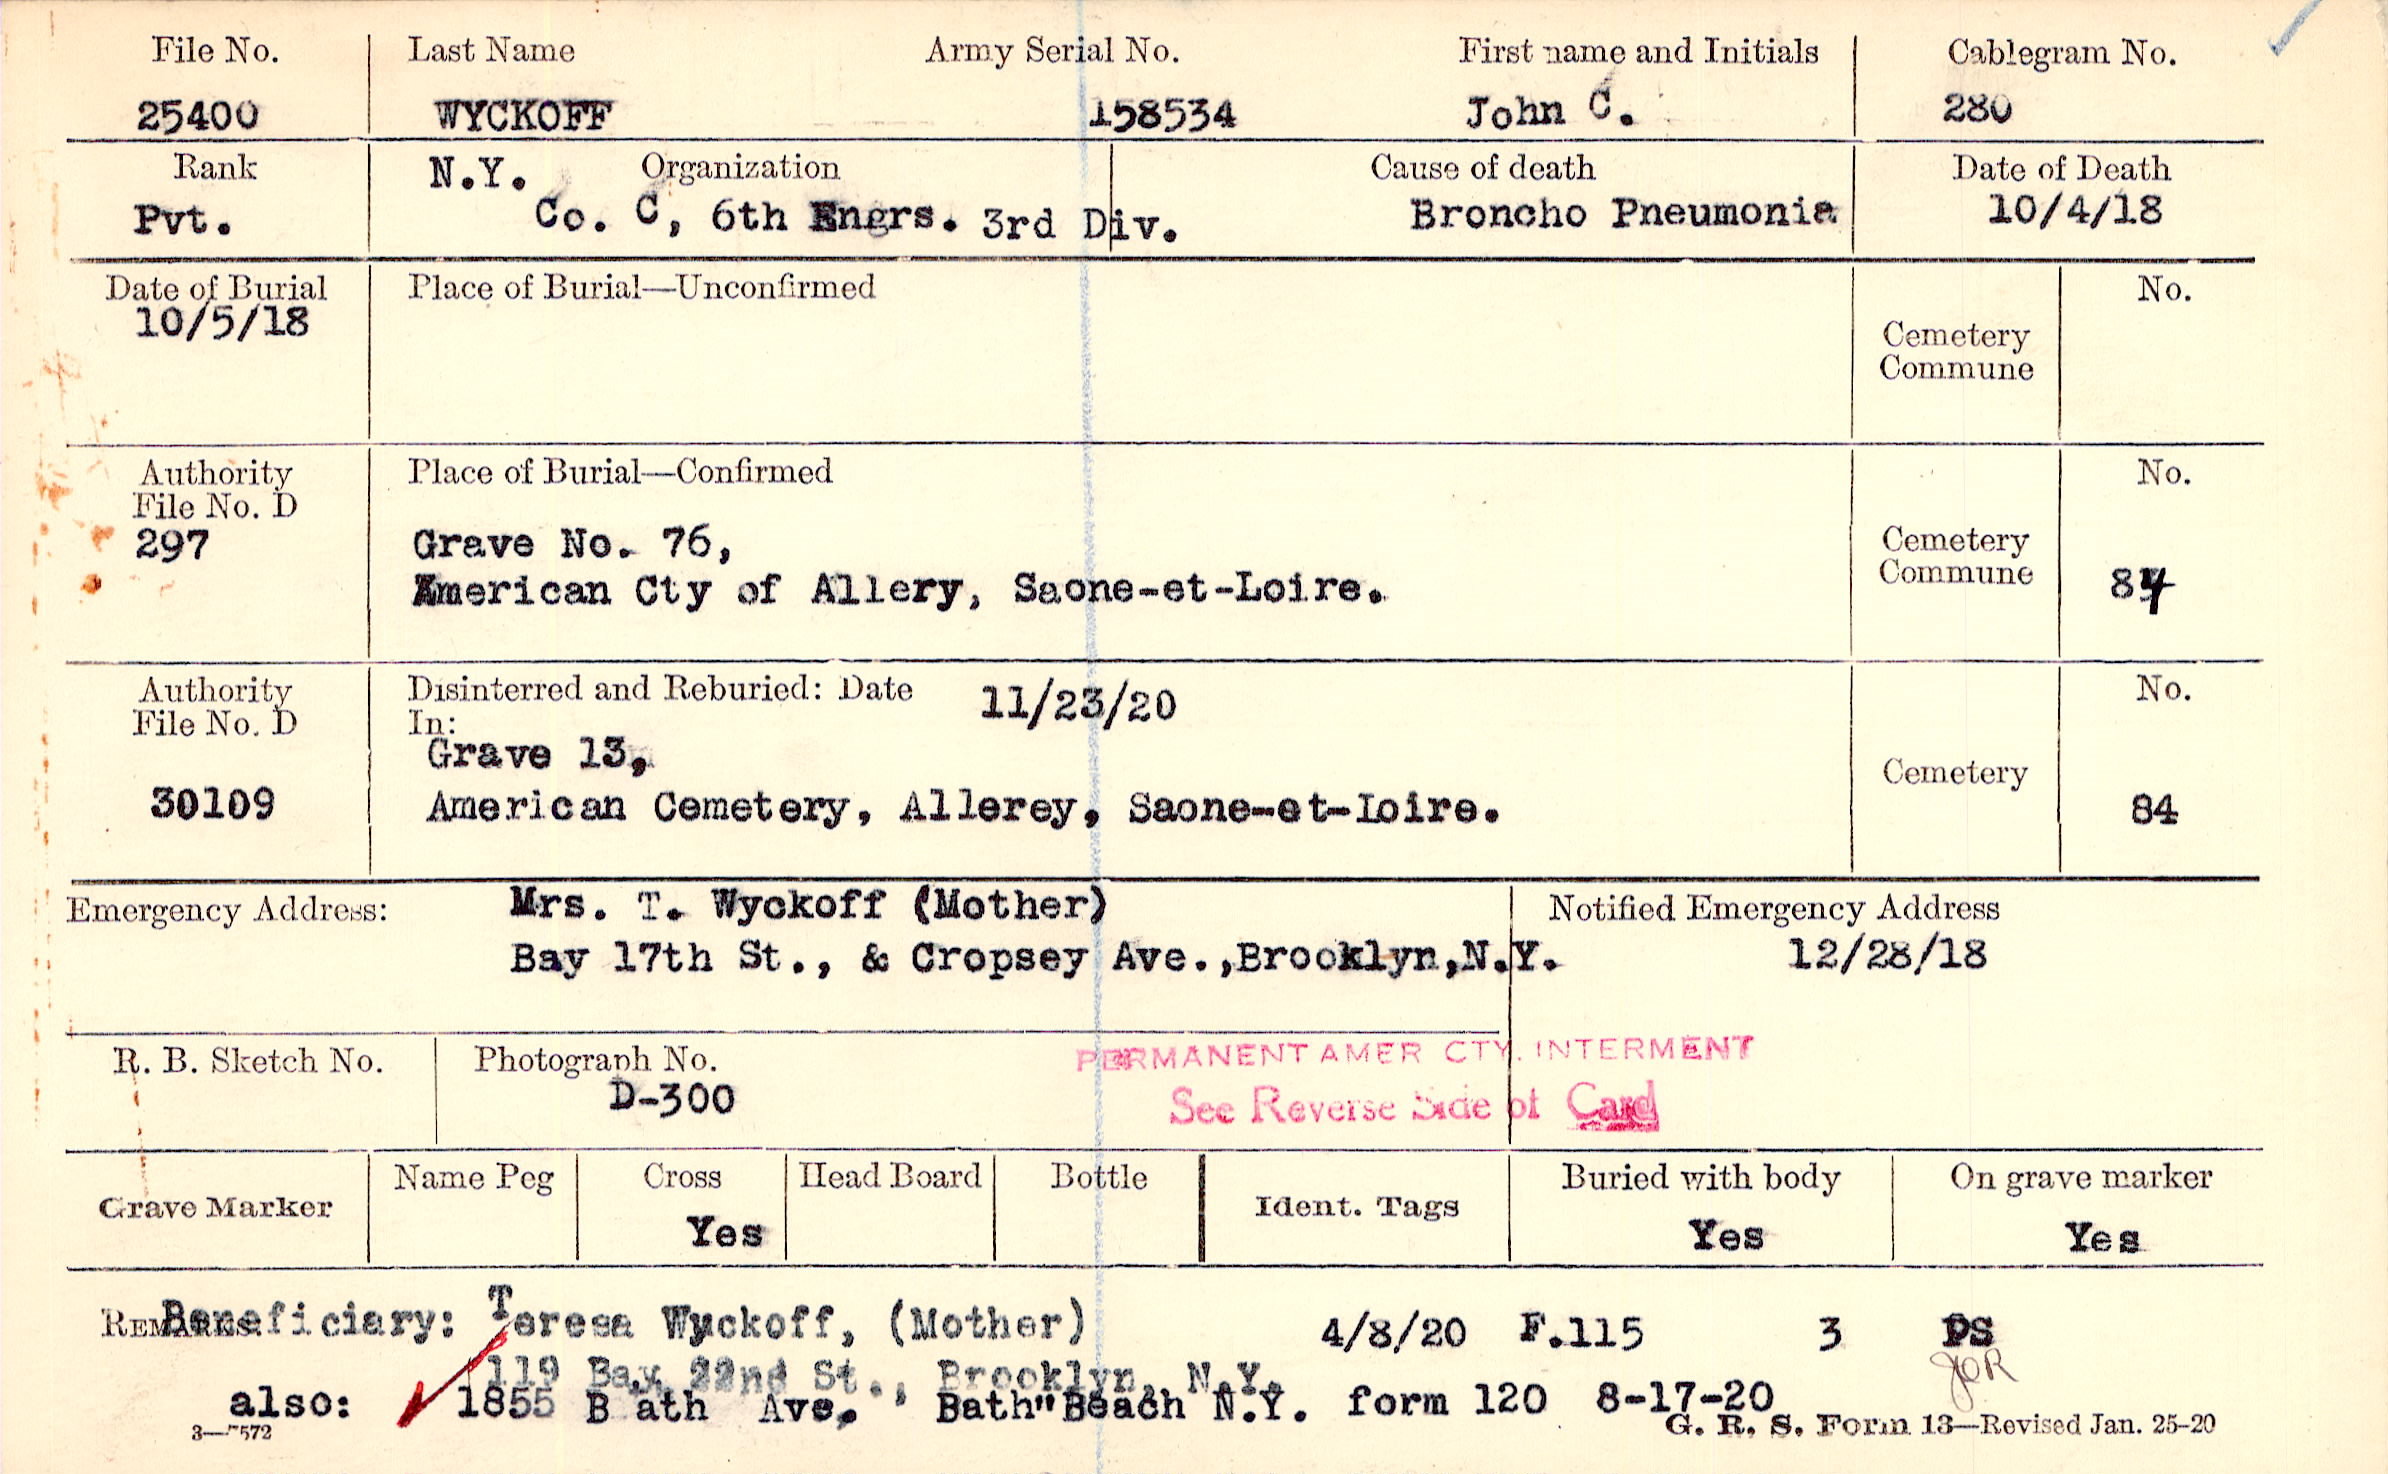 File No. Last Name Army Serial No. First name and Initials Cablegram No.
25400 WYCKOFF 158534 John C. 280
Rank N.Y. Organization Cause of death Date of Death
Pvt. Co. C, 6th Engrs. 3rd Div. Broncho Pneumonia 10/4/18
Date of Burial Place of Burial—Unconfirmed No.
10/5/18
Cemetery
Commune
Authority Place of Burial—Confirmed No.
File No. D
297 Grave No. 76, Cemetery
American Cty of Allery, Saone-et-Loire. Commune 84
Authority Disinterred and Reburied: Date 11/23/20 No.
File No. D In:
Grave 13,
Cemetery
30109 American Cemetery, Allerey, Saone-et-Loire. 84
Emergency Address: Mrs. T. Wyckoff (Mother) Notified Emergency Address
Bay 17th St., & Cropsey Ave.,Brooklyn,N.Y. 12/28/18
R. B. Sketch No. Photograph No. PERMANENT AMER CTY. INTERMENT
D-300 See Reverse Side of Card
Grave Marker Name Peg Cross Head Board Bottle Ident. Tags Buried with body On grave marker
Yes Yes Yes
REMARKS: Beneficiary: Teresa Wyckoff, (Mother) 4/8/20 F.115 3 PS
119 Bay 22nd St., Brooklyn, N.Y.
also: 1855 B ath Ave. Bath Beach N.Y. form 120 8-17-20
3—7572 G. R. S. Form 13—Revised Jan. 25-20